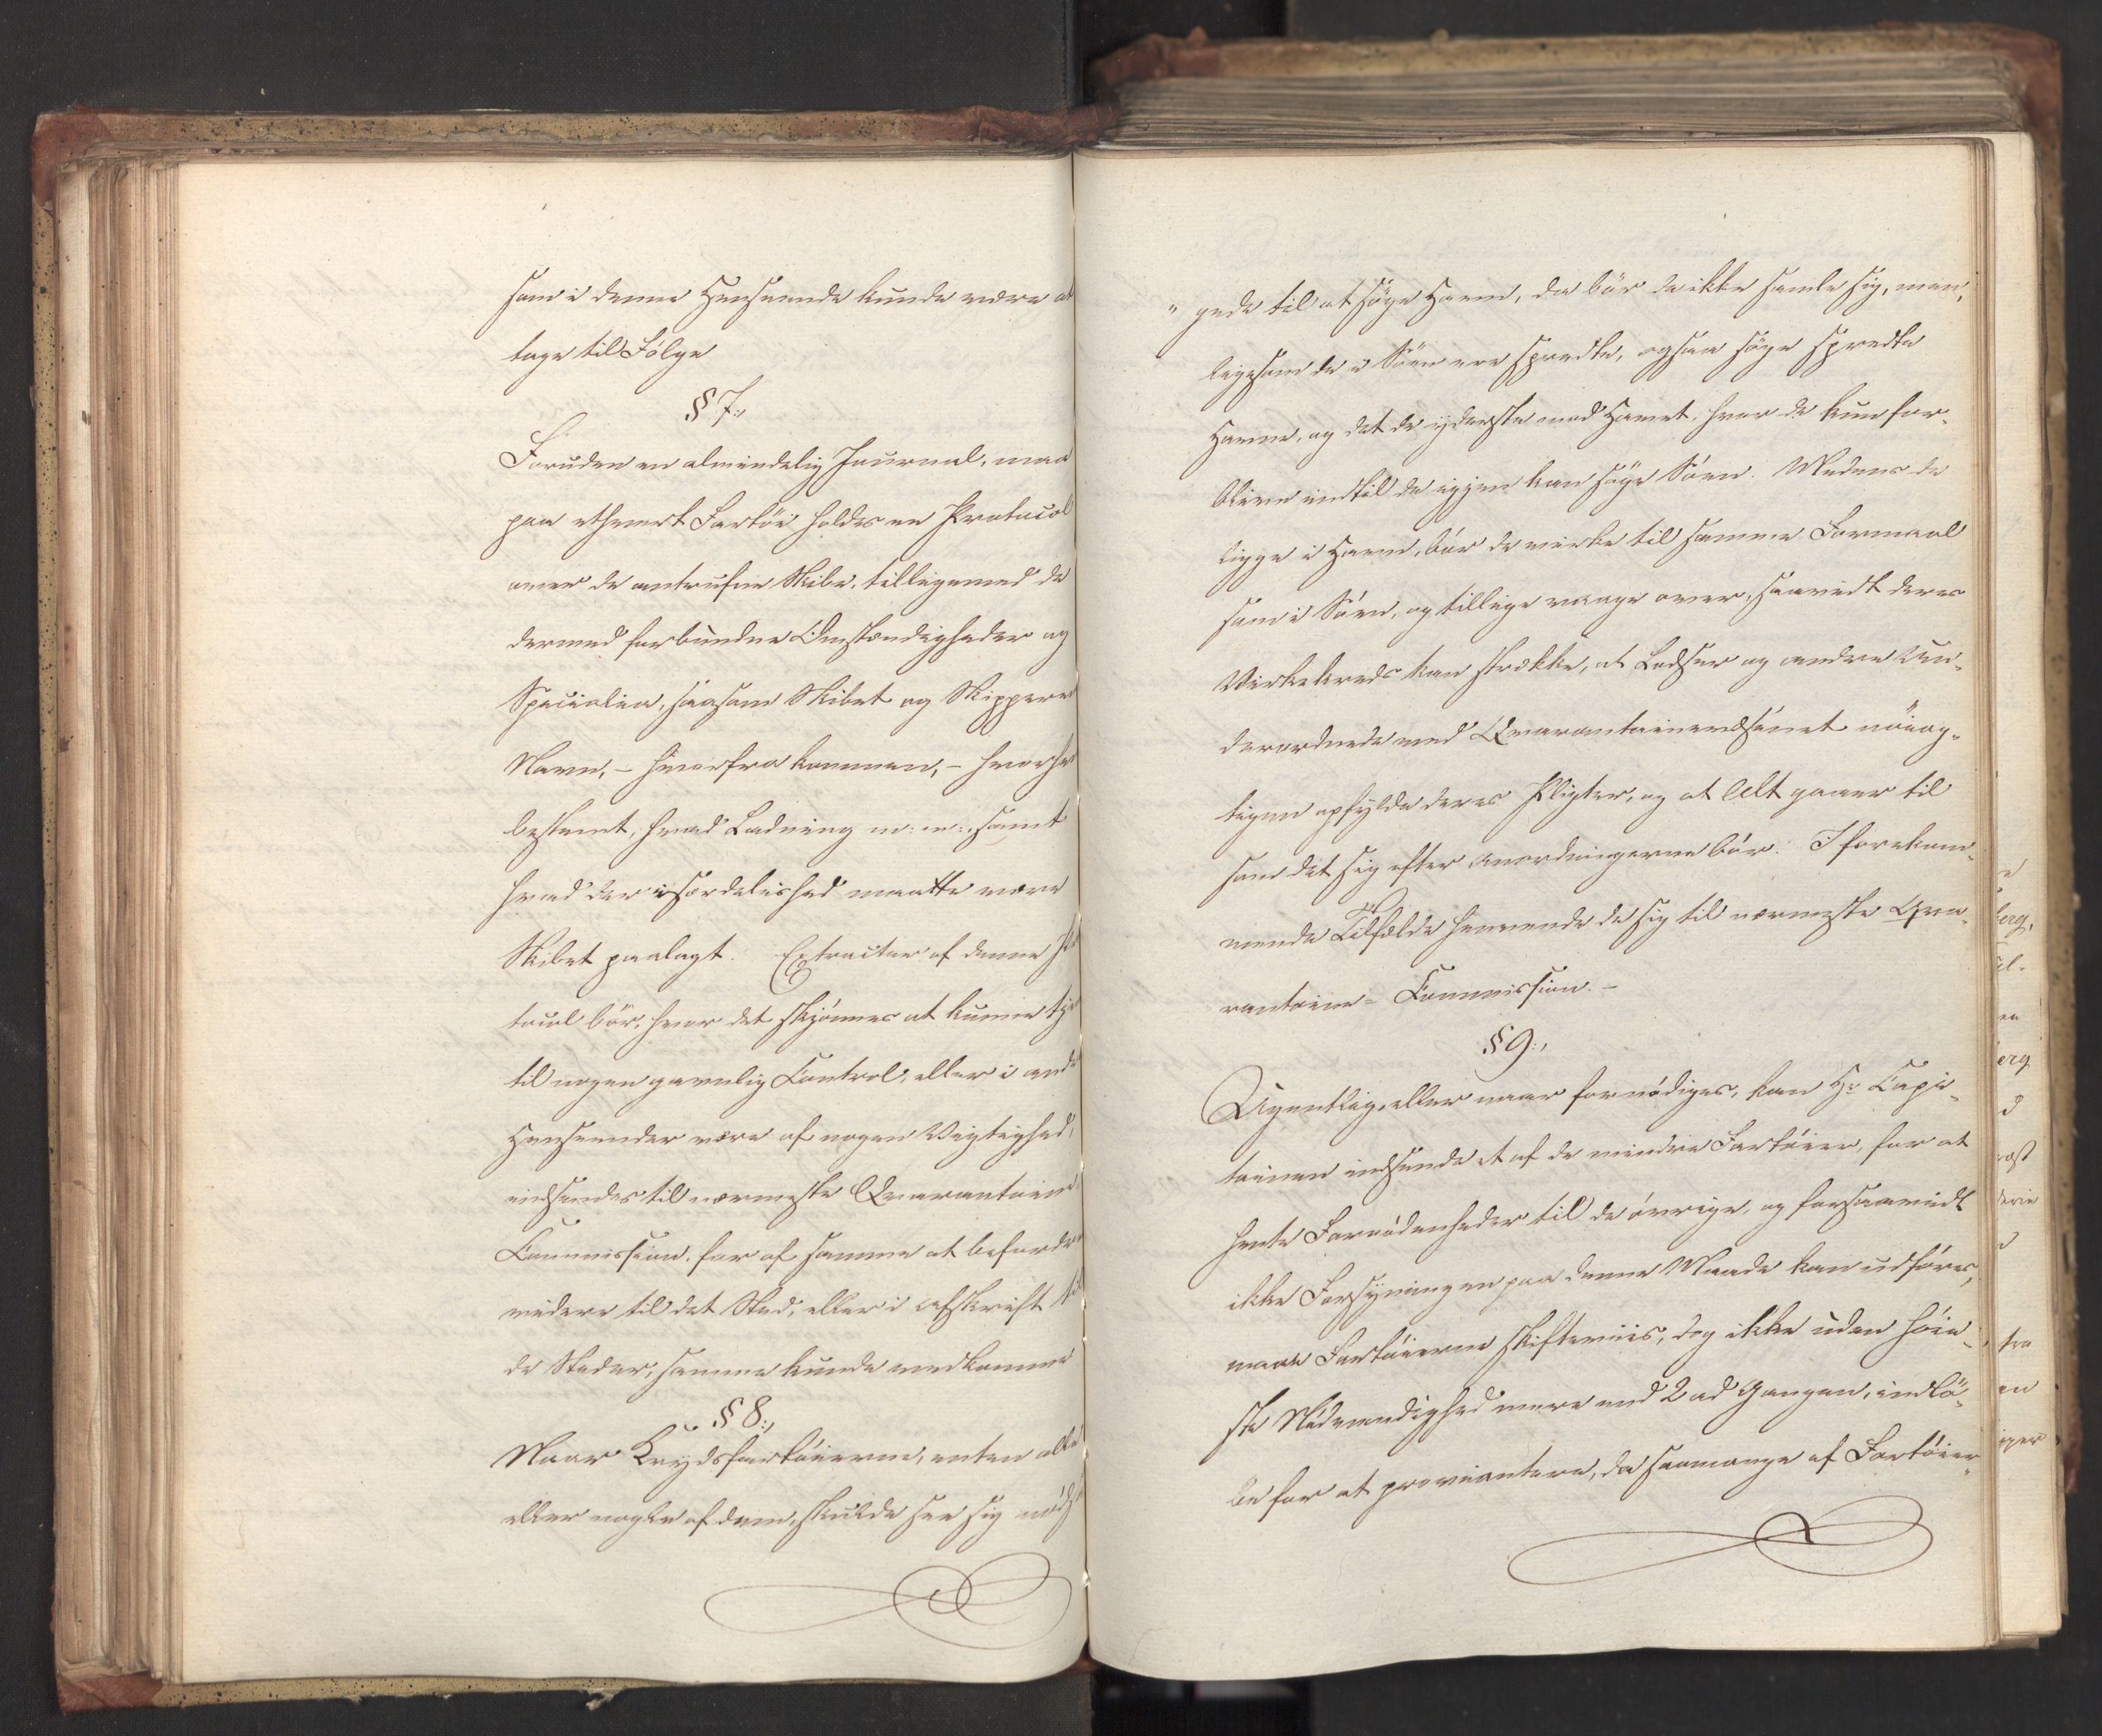 som i denne Henseende kunde være at
tage til Følge
§ 7.,
Foruden en almindelig Journal, maa
paa ethvert Fartöi holdes en Protocol
over de antrufne Skibe, tilligemed de
dermed forbundne Omstændigheder og
Specialia, saasom Skibet og Skipperens
Navn, – hvorfra kommen, – hvorhen
bestemt, hvad Ladning m: m:, samt
hvad der i særdeleshed maatte være
Skibet paalagt. Extracter af denne Pro
tocol bör, hvor det skjönnes at kunne tje
til nogen gavnlig Control, eller i andre
Henseender være af nogen Vigtighed,
indsendes til nærmeste Qvarantaine
Commission, for af samme at befordres
videre til det Sted, eller i Afskrift til
de Steder, samme kunde vedkomme
§ 8.,
Naar Krydsfartöierne, enten alle
eller nogle af dem, skulde see sig nödsa
" gede til at söge Havn, da bör de ikke samle sig, men,
ligesom de i Söen ere spredte, ogsaa söge spredte
Havne, og det de yderste mod Havet, hvor de kun for-
blive indtil de igjen kan söge Söen. Medens de
ligge i Havn, bör de virke til samme Formaal
som i Söen, og tillige vaage over, saavidt deres
Virkekreds kan strække, at Lodser og andre Un-
derordnede ved Qvarantainevæsenet nöiag-
tigen opfylde deres Pligter, og at Alt gaaer til
som det sig efter Anordningerne bör. I forekom-
mende Tilfælde henvende de sig til nærmeste Qva-
rantaine- Commission. –
§ 9.,
Ugentlig, eller naar fornödiges, kan Hr Capi-
tainen indsende et af de mindre Fartöier, for at
hente Fornödenheder til de övrige, og forsaavidt
ikke Forsyningen paa denne Maade kan udföres,
maae Fartöierne skifteviis, dog ikke uden höie-
ste Nödvendighed mere end 2 ad Gangen, indlö-
be for at proviantere, da saamange af Fartöier-